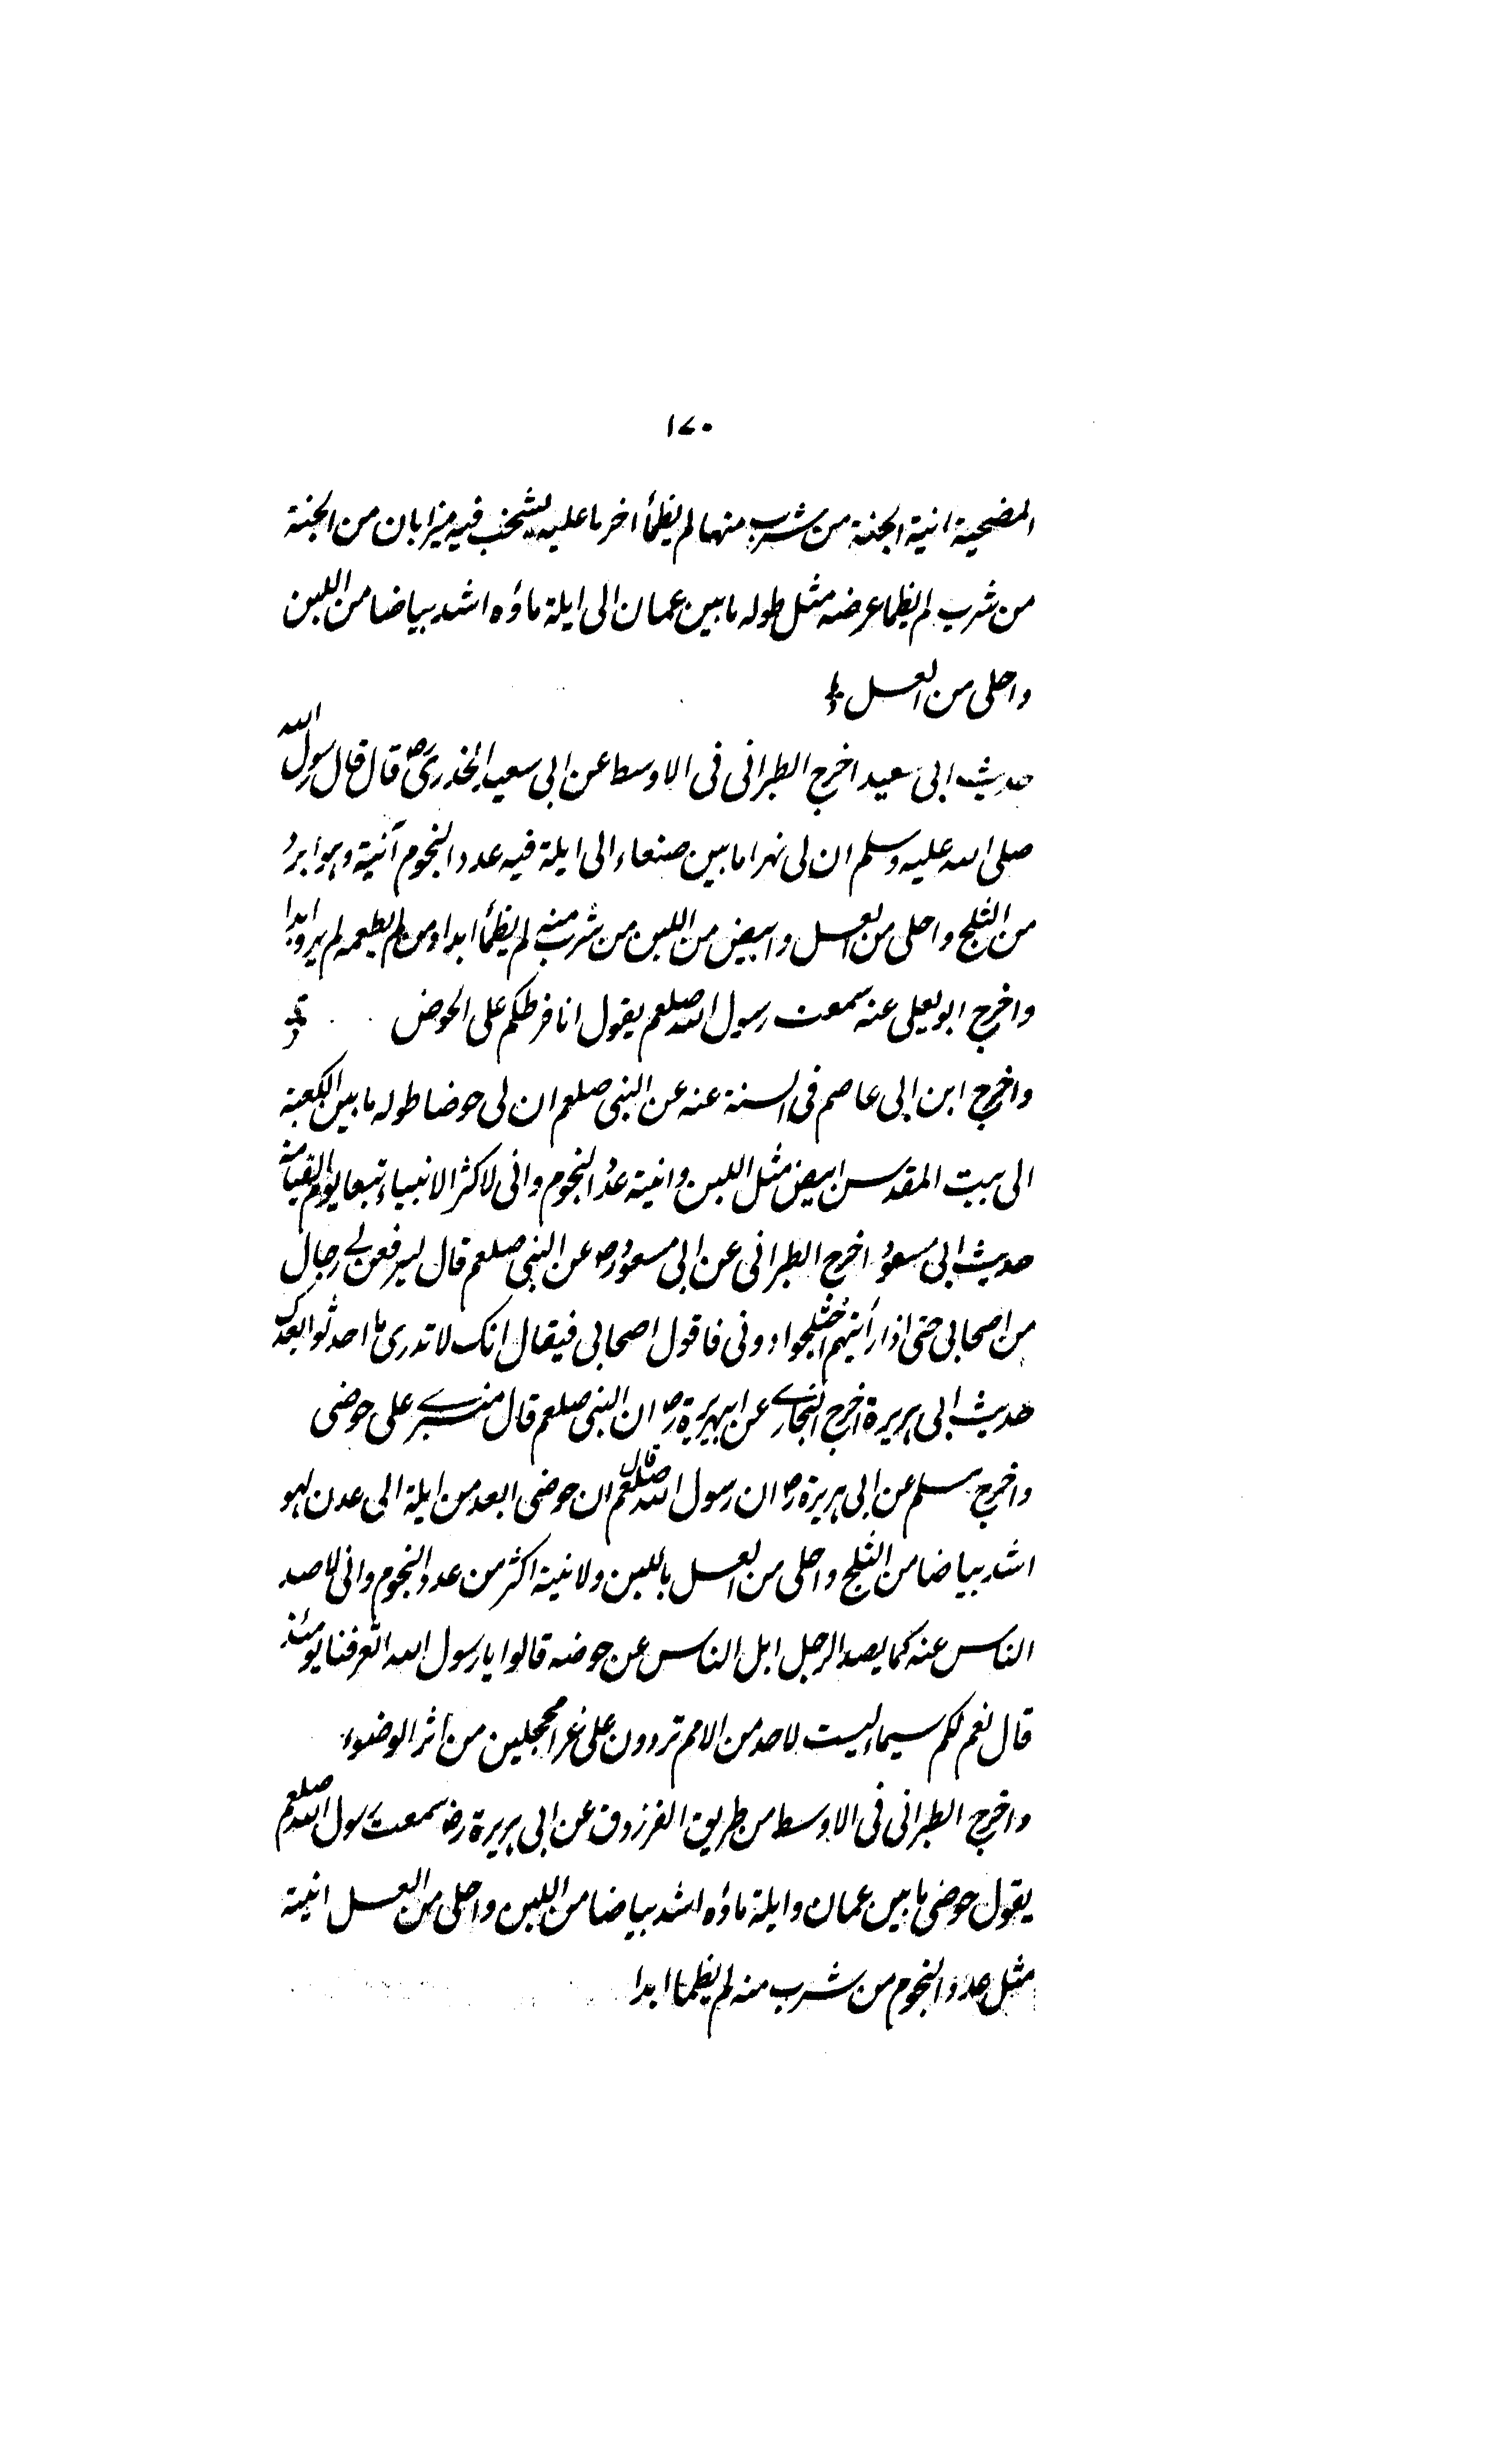 ١٧٠
المضحية انية الجنة من شرب منها لم يظمأ اخر ما عليه يشخب فيه ميزابان من الجنة
من شرب لم يظما عرضه مثل طوله ما بين عمان الى ايلة ماؤه اشد بياضا من اللبن
واحلى من العسل
حديث ابى سعيد اخرج الطبرانى فى الاوسط عن ابى سعيد الخدرى رض قال قال رسول الله
صلى الله عليه وسلم ان لى نهرا ما بين صنعاء الى ايلة فيه عدد النجوم آنية وهو ابرد
من الثلج واحلى من العسل وابيض من اللبن من شرب منه لم يظمأ ابدا ومن لم يطعمه لم يرو ابدا
واخرج ابو يعلى عنه سمعت رسول الله صلعم يقول انا فرطكم على الحوض
واخرج ابن ابى عاصم فى السنة عنه عن النبى صلعم ان لى حوضا طوله ما بين الكعبة
الى بيت المقدس ابيض مثل اللبن وانيته عدد النجوم وانى لاكثر الانبياء تبعا يوم القيامة
حديث ابى مسعود اخرج الطبرانى عن ابى مسعود رض عن النبى صلعم قال ليرفعن لى رجال
من اصحابى حتى اذا رأيتهم اختلجوا دونى فاقول اصحابى فيقال انك لا تدرى ما احدثوا بعدك
حديث ابى هريرة اخرج البخارى عن ابيهريرة رض ان النبى صلعم قال منبرى على حوضى
واخرج مسلم عن ابى هريرة رض ان رسول الله صلعم قال ان حوضى ابعد من ايلة الى عدن لهو
اشد بياضا من الثلج واحلى من العسل باللبن ولانيته اكثر من عدد النجوم وانى لاصد
الناس عنه كما يصد الرجل ابل الناس عن حوضه قالوا يا رسول الله اتعرفنا يومئذ
قال نعم لكم سيماء ليست لاحد من الامم تردون على غرا محجلين من اثر الوضوء
واخرج الطبرانى فى الاوسط من طريق الفرزدق عن ابى هريرة رض سمعت رسول الله صلعم
يقول حوضى ما بين عمان وايلة ماؤه اشد بياضا من اللبن واحلى من العسل انيته
مثل عدد النجوم من شرب منه لم يظما ابدا